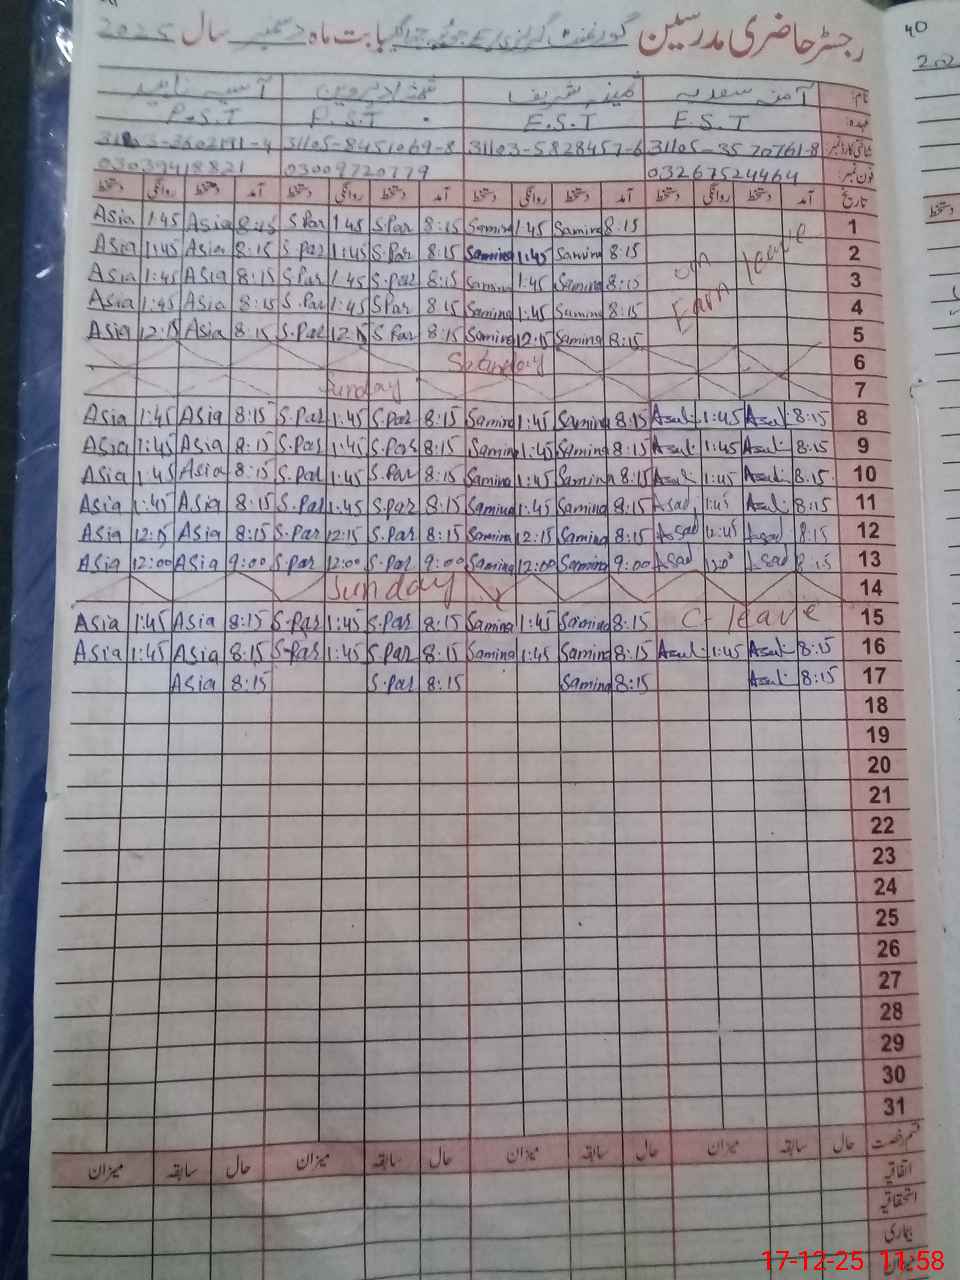 رجسٹر حاضری مدرسین گورنمنٹ گرلز بابت ماہ دسمبر سال 2025
40
نام: آمنہ سعدیہ ثمینہ شریف آسیہ ناہید
عہدہ: E.S.T E.S.T P.S.T P.S.T
شناختی کارڈ نمبر 31105-3570761-8 31103-5828457-6 31105-8451069-8
فون نمبر: 03267524464 03009720779 03039418821
تاریخ آمد دستخط روانگی دستخط آمد دستخط روانگی دستخط آمد دستخط روانگی دستخط آمد دستخط روانگی دستخط
Asia 1:45 Asia 8:15 S.Par 1:45 S.Par 8:15 Samina 1:45 Samina 8:15 1
Asia 1:45 Asia 8:15 S.Par 1:45 S.Par 8:15 Samina 1:45 Samina 8:15 on leave 2
Asia 1:45 Asia 8:15 S.Par 1:45 S.Par 8:15 Samina 1:45 Samina 8:15 3
Asia 1:45 Asia 8:15 S.Par 1:45 S.Par 8:15 Samina 1:45 Samina 8:15 Earn 4
Asia 12:15 Asia 8:15 S.Par 12:15 S.Par 8:15 Samina 12:15 Samina 8:15 5
Saturday 6
Sunday 7
Asia 1:45 Asia 8:15 S.Par 1:45 S.Par 8:15 Samina 1:45 Samina 8:15 1:45 8:15 8
Asia 1:45 Asia 8:15 S.Par 1:45 S.Par 8:15 Samina 1:45 Samina 8:15 1:45 8:15 9
Asia 1:45 Asia 8:15 S.Par 1:45 S.Par 8:15 Samina 1:45 Samina 8:15 1:45 8:15 10
Asia 1:45 Asia 8:15 S.Par 1:45 S.Par 8:15 Samina 1:45 Samina 8:15 Asad 1:45 8:15 11
Asia 12:15 Asia 8:15 S.Par 12:15 S.Par 8:15 Samina 12:15 Samina 8:15 Asad Asad 8:15 12
Asia 12:00 Asia 9:00 S.Par 12:00 S.Par 9:00 Samina 12:00 Samina 9:00 Asad Asad 8:15 13
Sunday 14
Asia 1:45 Asia 8:15 S.Par 1:45 S.Par 8:15 Samina 1:45 Samina 8:15 C-leave 15
Asia 1:45 Asia 8:15 S.Par 1:45 S.Par 8:15 Samina 1:45 Samina 8:15 1:45 8:15 16
Asia 8:15 S.Par 8:15 Samina 8:15 8:15 17
18
19
20
21
22
23
24
25
26
27
28
29
30
31
قسم رخصت حال سابقہ میزان حال سابقہ میزان حال سابقہ میزان حال سابقہ میزان
اتفاقیہ
استحقاقیہ
بیماری
17-12-25 11:58